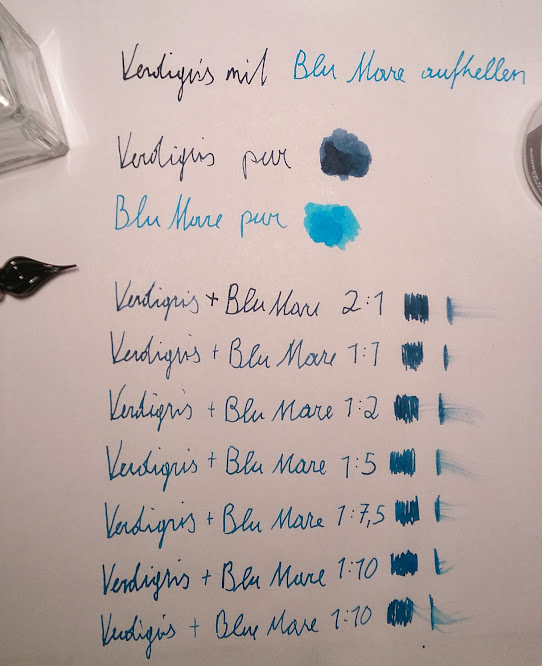 Verdigris mit Blu Mare aufhellen
Verdigris pur
Blu Mare pur
Verdigris + Blu Mare 2:1
Verdigris + Blu Mare 1:1
Verdigris + Blu Mare 1:2
Verdigris + Blu Mare 1:5
Verdigris + Blu Mare 1:7,5
Verdigris + Blu Mare 1:10
Verdigris + Blue Mare 1:10